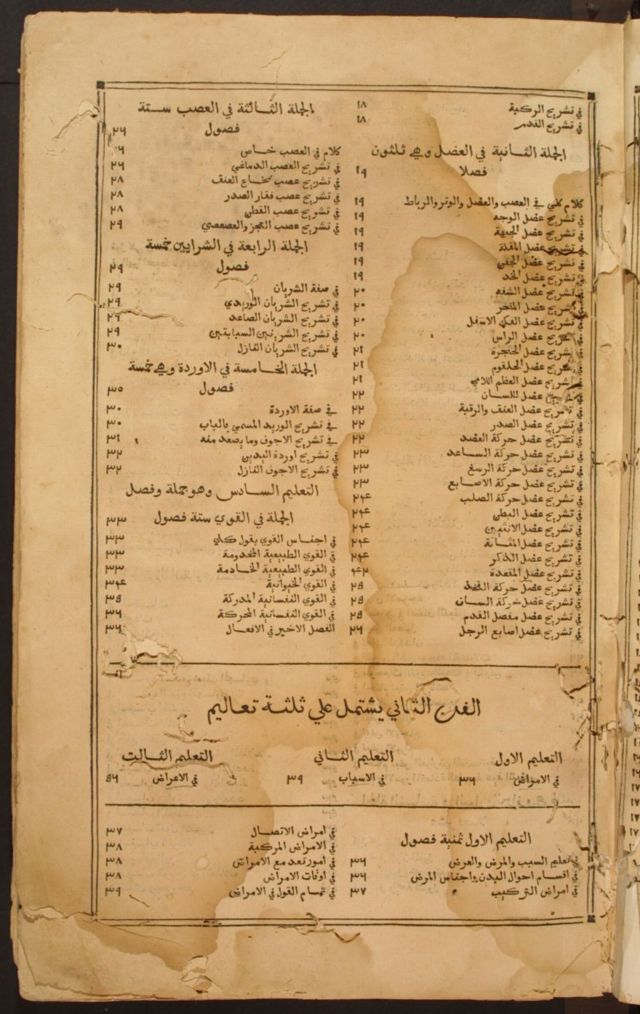 في تشريح الركبة ١٨
في تشريح القدم ١٨
الجملة الثانية في العضل وهي ثلثون
فصلا ١٩
كلام كلي في العصب والعضل والوتر والرباط ١٩
في تشريح عضل الوجه ١٩
في تشريح عضل الجبهة ١٩
في تشريح عضل المقلة ١٩
في تشريح عضل الجفن ١٩
في تشريح عضل الخد ١٩
في تشريح عضل الشفه ٢٠
في تشريح عضل المنخر ٢٠
في تشريح عضل الفك الاسفل ٢٠
في تشريح عضل الراس ٢٠
في تشريح عضل الحنجرة ٢١
في تشريح عضل الحلقوم ٢١
في تشريح عضل العظم اللامي ٢١
في تشريح عضل اللسان ٢٢
في تشريح عضل العنق والرقبة ٢٢
في تشريح عضل الصدر ٢٢
في تشريح عضل حركة العضد ٢٢
في تشريح عضل حركة الساعد ٢٣
في تشريح عضل حركة الرسغ ٢٣
في تشريح عضل حركة الاصابع ٢٣
في تشريح عضل حركة الصلب ٢٤
في تشريح عضل البطن ٢٤
في تشريح عضل الانثيين ٢٤
في تشريح عضل المثانة ٢٤
في تشريح عضل الذكر ٢٤
في تشريح عضل المقعدة ٢٤
في تشريح عضل حركة الفخذ ٢٤
في تشريح عضل حركة الساق ٢٥
في تشريح عضل مفصل القدم ٢٥
في تشريح عضل اصابع الرجل ٢٦
الجملة الثالثة في العصب ستة
فصول ٢٦
كلام في العصب خاص
في تشريح العصب الدماغي ٢٦
في تشريح عصب نخاع العنق ٢٨
في تشريح عصب فقار الصدر ٢٨
في تشريح عصب القطن ٢٨
في تشريح عصب العجز والعصعصي ٢٩
الجملة الرابعة في الشرايين خمسة
فصول ٢٩
في صفة الشريان ٢٩
في تشريح الشريان الوريدي ٢٩
في تشريح الشريان الصاعد ٢٩
في تشريح الشريانين السباتيين ٢٩
في تشريح الشريان النازل ٣٠
الجملة الخامسة في الاوردة وهي خمسة
فصول ٣٠
في صفة الاوردة ٣٠
في تشريح الوريد المسمي بالباب ٣٠
في تشريح الاجوف وما يصعد منه ٣١
في تشريح اوردة اليدين ٣٢
في تشريح الاجوف النازل ٣٢
التعليم السادس وهو جملة وفصل
الجملة في القوي ستة فصول ٣٣
في اجناس القوي بقول كلي ٣٣
في القوي الطبيعية المخدومة ٣٣
في القوي الطبيعية الخادمة ٣٣
في القوي الحيوانية ٣٤
في القوي النفسانية المدركة ٣٥
في القوي النفسانية المحركة ٣٦
الفصل الاخير في الافعال ٣٦
الفن الثاني يشتمل علي ثلثة تعاليم
التعليم الاول التعليم الثاني التعليم الثالث
في الامراض ٣٦ في الاسباب ٣٩ في الاعراض ٥٦
التعليم الاول ثمنية فصول
في تعليم السبب والمرض والعرض ٣٦
في اقسام احوال البدن واجناس المرض ٣٦
في امراض التركيب ٣٧
في امراض الاتصال ٣٧
في الامراض المركبة ٣٨
في امور تعد مع الامراض ٣٨
في اوقات الامراض ٣٨
في تمام القول في الامراض ٣٩